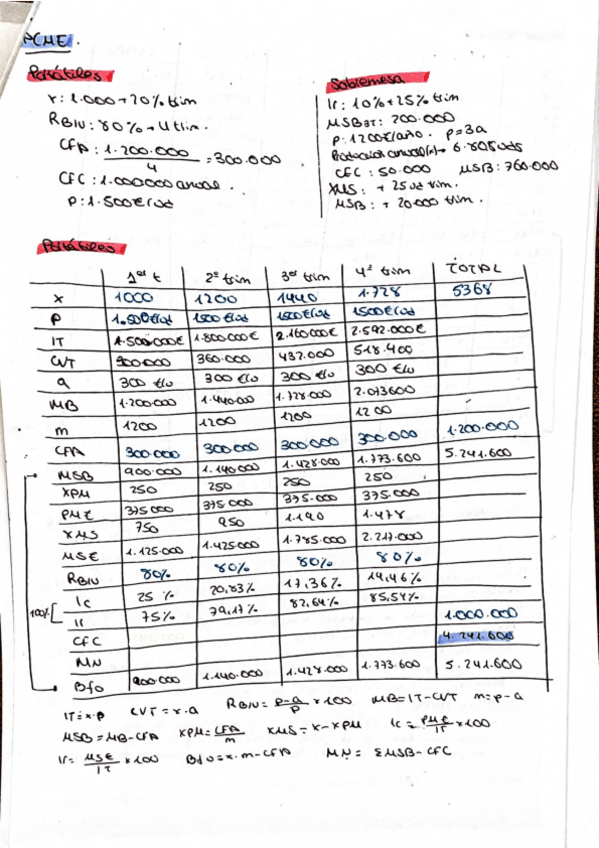 ACME.
Portátiles
x: 1.000 + 20% trim
RBIV: 80% → 4 trim.
CFA: 1.200.000 / 4 = 300.000
CFC: 1.000000 anual.
P: 1.500€/ud
Sobremesa
Ir: 10% + 25% trim
MSB 3T: 200.000
P: 1200€/año. P=3a
Producción anual(x)→ 6.805uds
CFC: 50.000 MSB: 760.000
XMS: + 25 ud trim.
MSB: + 20.000 trim.
Portátiles
1er t 2º trim 3er trim 4º trim TOTAL
x 1000 1200 1440 1.728 5368
P 1.500€/ud 1500€/ud 1500€/ud 1500€/ud
IT 1.500.000€ 1.800.000€ 2.160.000€ 2.592.000€
CVT 300.000 360.000 432.000 518.400
a 300 €/u 300 €/u 300 €/u 300 €/u
MB 1.200.000 1.440.000 1.728.000 2.073600
m 1200 1200 1200 1200
CFA 300.000 300.000 300.000 300.000 1.200.000
MSB 900.000 1.140.000 1.428.000 1.773.600 5.241.600
XPM 250 250 250 250
PME 375000 375.000 375.000 375.000
XMS 750 950 1.190 1.478
MSE 1.125.000 1.425.000 1.785.000 2.217.000
RBIV 80% 80% 80% 80%
100% Ic 25% 20,83% 17,36% 14,46%
Ir 75% 79,17% 82,64% 85,54%
CFC 1.000.000
MN 4.241.600
Bfo 900.000 1.140.000 1.428.000 1.773.600 5.241.600
IT=x·p CVT=x·a RBIV= p-a/p x100 MB=IT-CVT m=p-a
MSB=MB-CFA XPM= CFA/m XMS=X-XPM Ic= PME/IT x100
Ir= MSE/IT x100 Bfo=x·m-CFA MN= ΣMSB-CFC